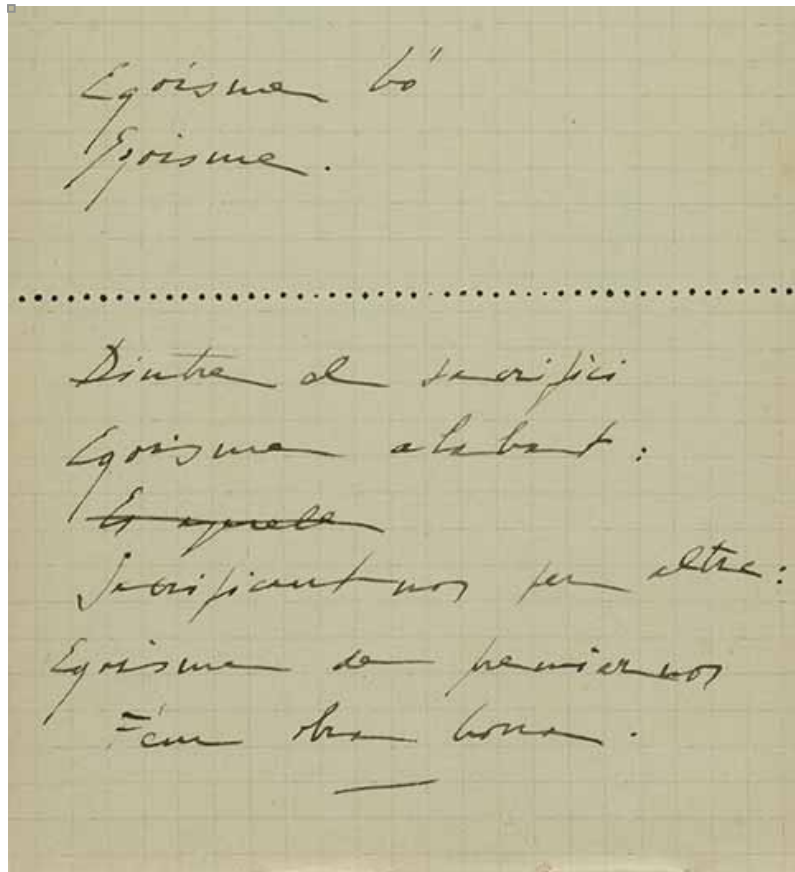 Egoisme bó
Egoisme.
Dintre el sacrifici
Egoisme alabant:
Es aquele
Sacrificantnos per altre:
Egoisme de premiarnos
Fem obra bona.